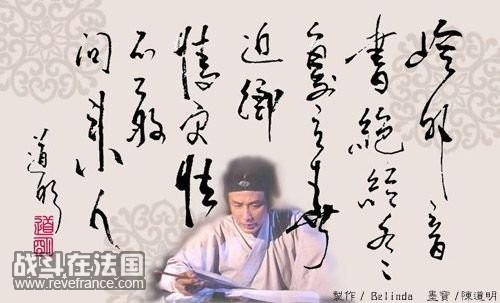 嶺外音
書絕經冬
復立春
近鄉
情更怯
不敢
問來人
道明
道明
战斗在法国
www.revefrance.com
製作 / Belinda 墨寶 / 陳道明